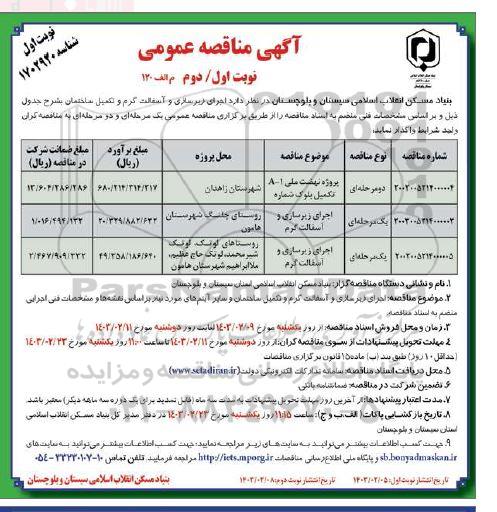 نوبت اول
شناسه ۱۷۰۲۹۲۰
آگهی مناقصه عمومی
نوبت اول/ دوم م الف ۱۲۰
بنیاد مسکن انقلاب اسلامی سیستان و بلوچستان در نظر دارد اجرای زیرسازی و آسفالت گرم و تکمیل ساختمان بشرح جدول
ذیل و بر اساس مشخصات فنی منضم به اسناد مناقصه را از طریق برگزاری مناقصه عمومی یک مرحله‌ای و دو مرحله‌ای به مناقصه گران
واجد شرایط واگذار نماید:
شماره مناقصه نوع مناقصه موضوع مناقصه محل پروژه مبلغ برآورد (ریال) مبلغ ضمانت شرکت در مناقصه (ریال)
دومرحله‌ای پروژه نهضت ملی A-۱ تکمیل بلوک شماره شهرستان زاهدان ۶۸۰/۲۱۴/۳۱۴/۳۱۷ ۱۳/۶۰۴/۲۸۶/۲۸۶
یک‌مرحله‌ای اجرای زیرسازی و آسفالت گرم روستای چلنگ شهرستان هامون ۲۰/۳۲۹/۸۸۲/۶۳۲ ۱/۰۱۶/۴۹۴/۱۳۲
یک‌مرحله‌ای اجرای زیرسازی و آسفالت گرم روستاهای لوتک، لوتک شیرمحمد، لوتک حاج عظیم، ملاابراهیم شهرستان هامون ۴۹/۳۵۸/۱۸۶/۶۴۰ ۲/۴۶۷/۹۰۹/۳۳۲
۱. نام و نشانی دستگاه مناقصه گزار: بنیاد مسکن انقلاب اسلامی استان سیستان و بلوچستان
۲. موضوع مناقصه: اجرای زیرسازی و آسفالت گرم و تکمیل ساختمان و سایر آیتم‌های مورد نیاز بر اساس نقشه‌ها و مشخصات فنی اجرایی
منضم به اسناد مناقصه.
۳. زمان و محل فروش اسناد مناقصه: از روز یکشنبه مورخ ۱۴۰۳/۰۲/۰۹ لغایت روز دوشنبه مورخ ۱۴۰۳/۰۲/۱۱
۴. مهلت تحویل پیشنهادات از سوی مناقصه گران: از روز دوشنبه مورخ ۱۴۰۳/۰۲/۱۱ تا ساعت ۱۱:۰۰ روز یکشنبه مورخ ۱۴۰۳/۰۲/۲۳
(حداقل ۱۰ روز) طبق بند (ب) ماده ۱۵ قانون برگزاری مناقصات
۵. محل دریافت اسناد مناقصه: سامانه تدارکات الکترونیکی دولت (www.setadiran.ir)
۶. تضمین شرکت در مناقصه: ضمانتنامه بانکی
۷. مدت اعتبار پیشنهادها: از آخرین روز مهلت تحویل پیشنهادات به مدت سه ماه (قابل تمدید برای یک دوره سه ماهه دیگر) معتبر باشد.
۸. تاریخ بازگشایی پاکات (الف، ب و ج): ساعت ۱۱:۱۵ روز یکشنبه مورخ ۱۴۰۳/۰۲/۲۳ در دفتر مدیر کل بنیاد مسکن انقلاب اسلامی
استان سیستان و بلوچستان
۹. جهت کسب اطلاعات بیشتر می‌توانید به سایت‌های زیر مراجعه نمایید: جهت کسب اطلاعات بیشتر می‌توانید به سایت‌های
sb.bonyadmaskan.ir و پایگاه ملی اطلاع رسانی مناقصات http://iets.mporg.ir مراجعه فرمایید. تلفن تماس ۱۰-۳۳۲۳۰۱۰۷-۰۵۴
تاریخ انتشار نوبت اول: ۱۴۰۳/۰۲/۰۵ تاریخ انتشار نوبت دوم: ۱۴۰۳/۰۲/۰۸ بنیاد مسکن انقلاب اسلامی سیستان و بلوچستان